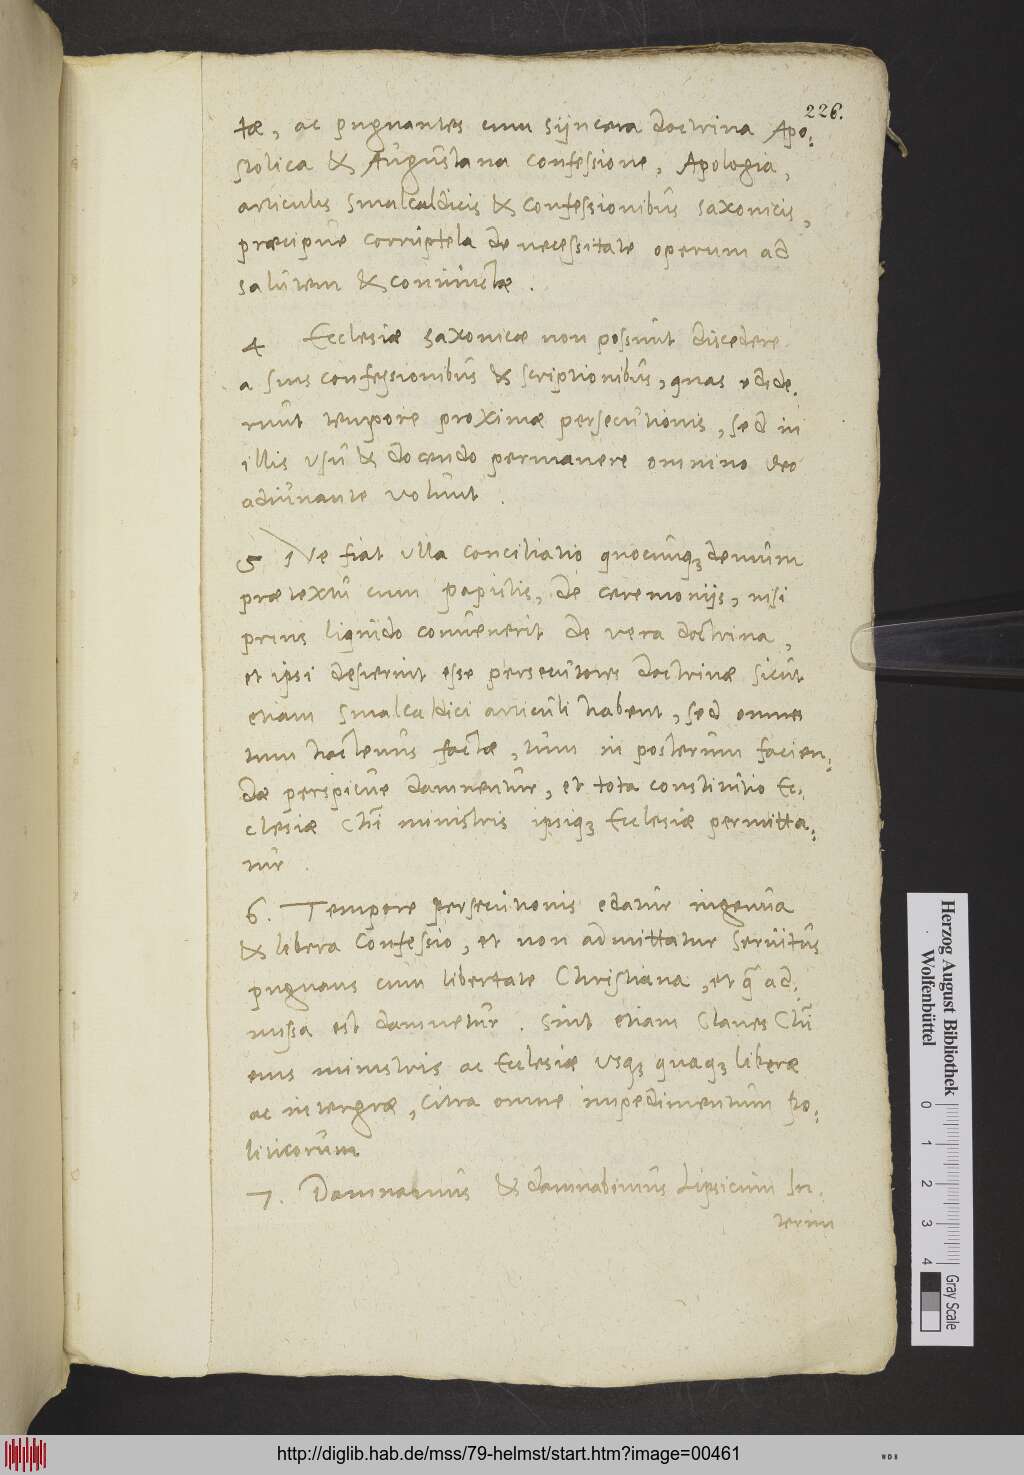 226.
tæ, ac pugnantes cum syncera doctrina Apo:
stolica & Augustana confessione, Apologia,
articulis Smalcaldicis & confessionibus saxonicis,
præcipue corruptela de necessitate operum ad
salutem & coniunctæ.
4 Ecclesiæ saxonicæ non possunt discedere
a suis confessionibus & scriptionibus, quas edide.
runt tempore proximæ persecutionis, sed in
illis usu & docendo permanere omnino deo
adiuuante volunt.
5 Ne fiat ulla conciliatio quocunqꝫ demum
prætextu cum papistis, de ceremonijs, nisi
prius liquido conuenerit de vera doctrina,
et ipsi desierint esse persecutores doctrinæ sicut
etiam Smalcaldici articuli habent, sed omnes
tum hactenus factæ, tum in posterum facien:
dæ perspicue damnentur, et tota constitutio Ec:
clesiæ Chri ministris ipsiqꝫ Ecclesiæ permitta:
tur.
6. Tempore persecutionis edatur ingenua
& libera Confessio, et non admittatur seruitus
pugnans cum libertate Christiana, et q̄ ad:
missa est damnetur. Sint etiam Claues Chri
eius ministris ac Ecclesiæ usqꝫ quaqꝫ liberæ
ac integræ, citra omne impedimentum po:
liticorum
7. Damnamus & damnabimus Lipsicum In
terim
Herzog August Bibliothek
Wolfenbüttel
0 1 2 3 4
Gray Scale
http://diglib.hab.de/mss/79-helmst/start.htm?image=00461
WDB